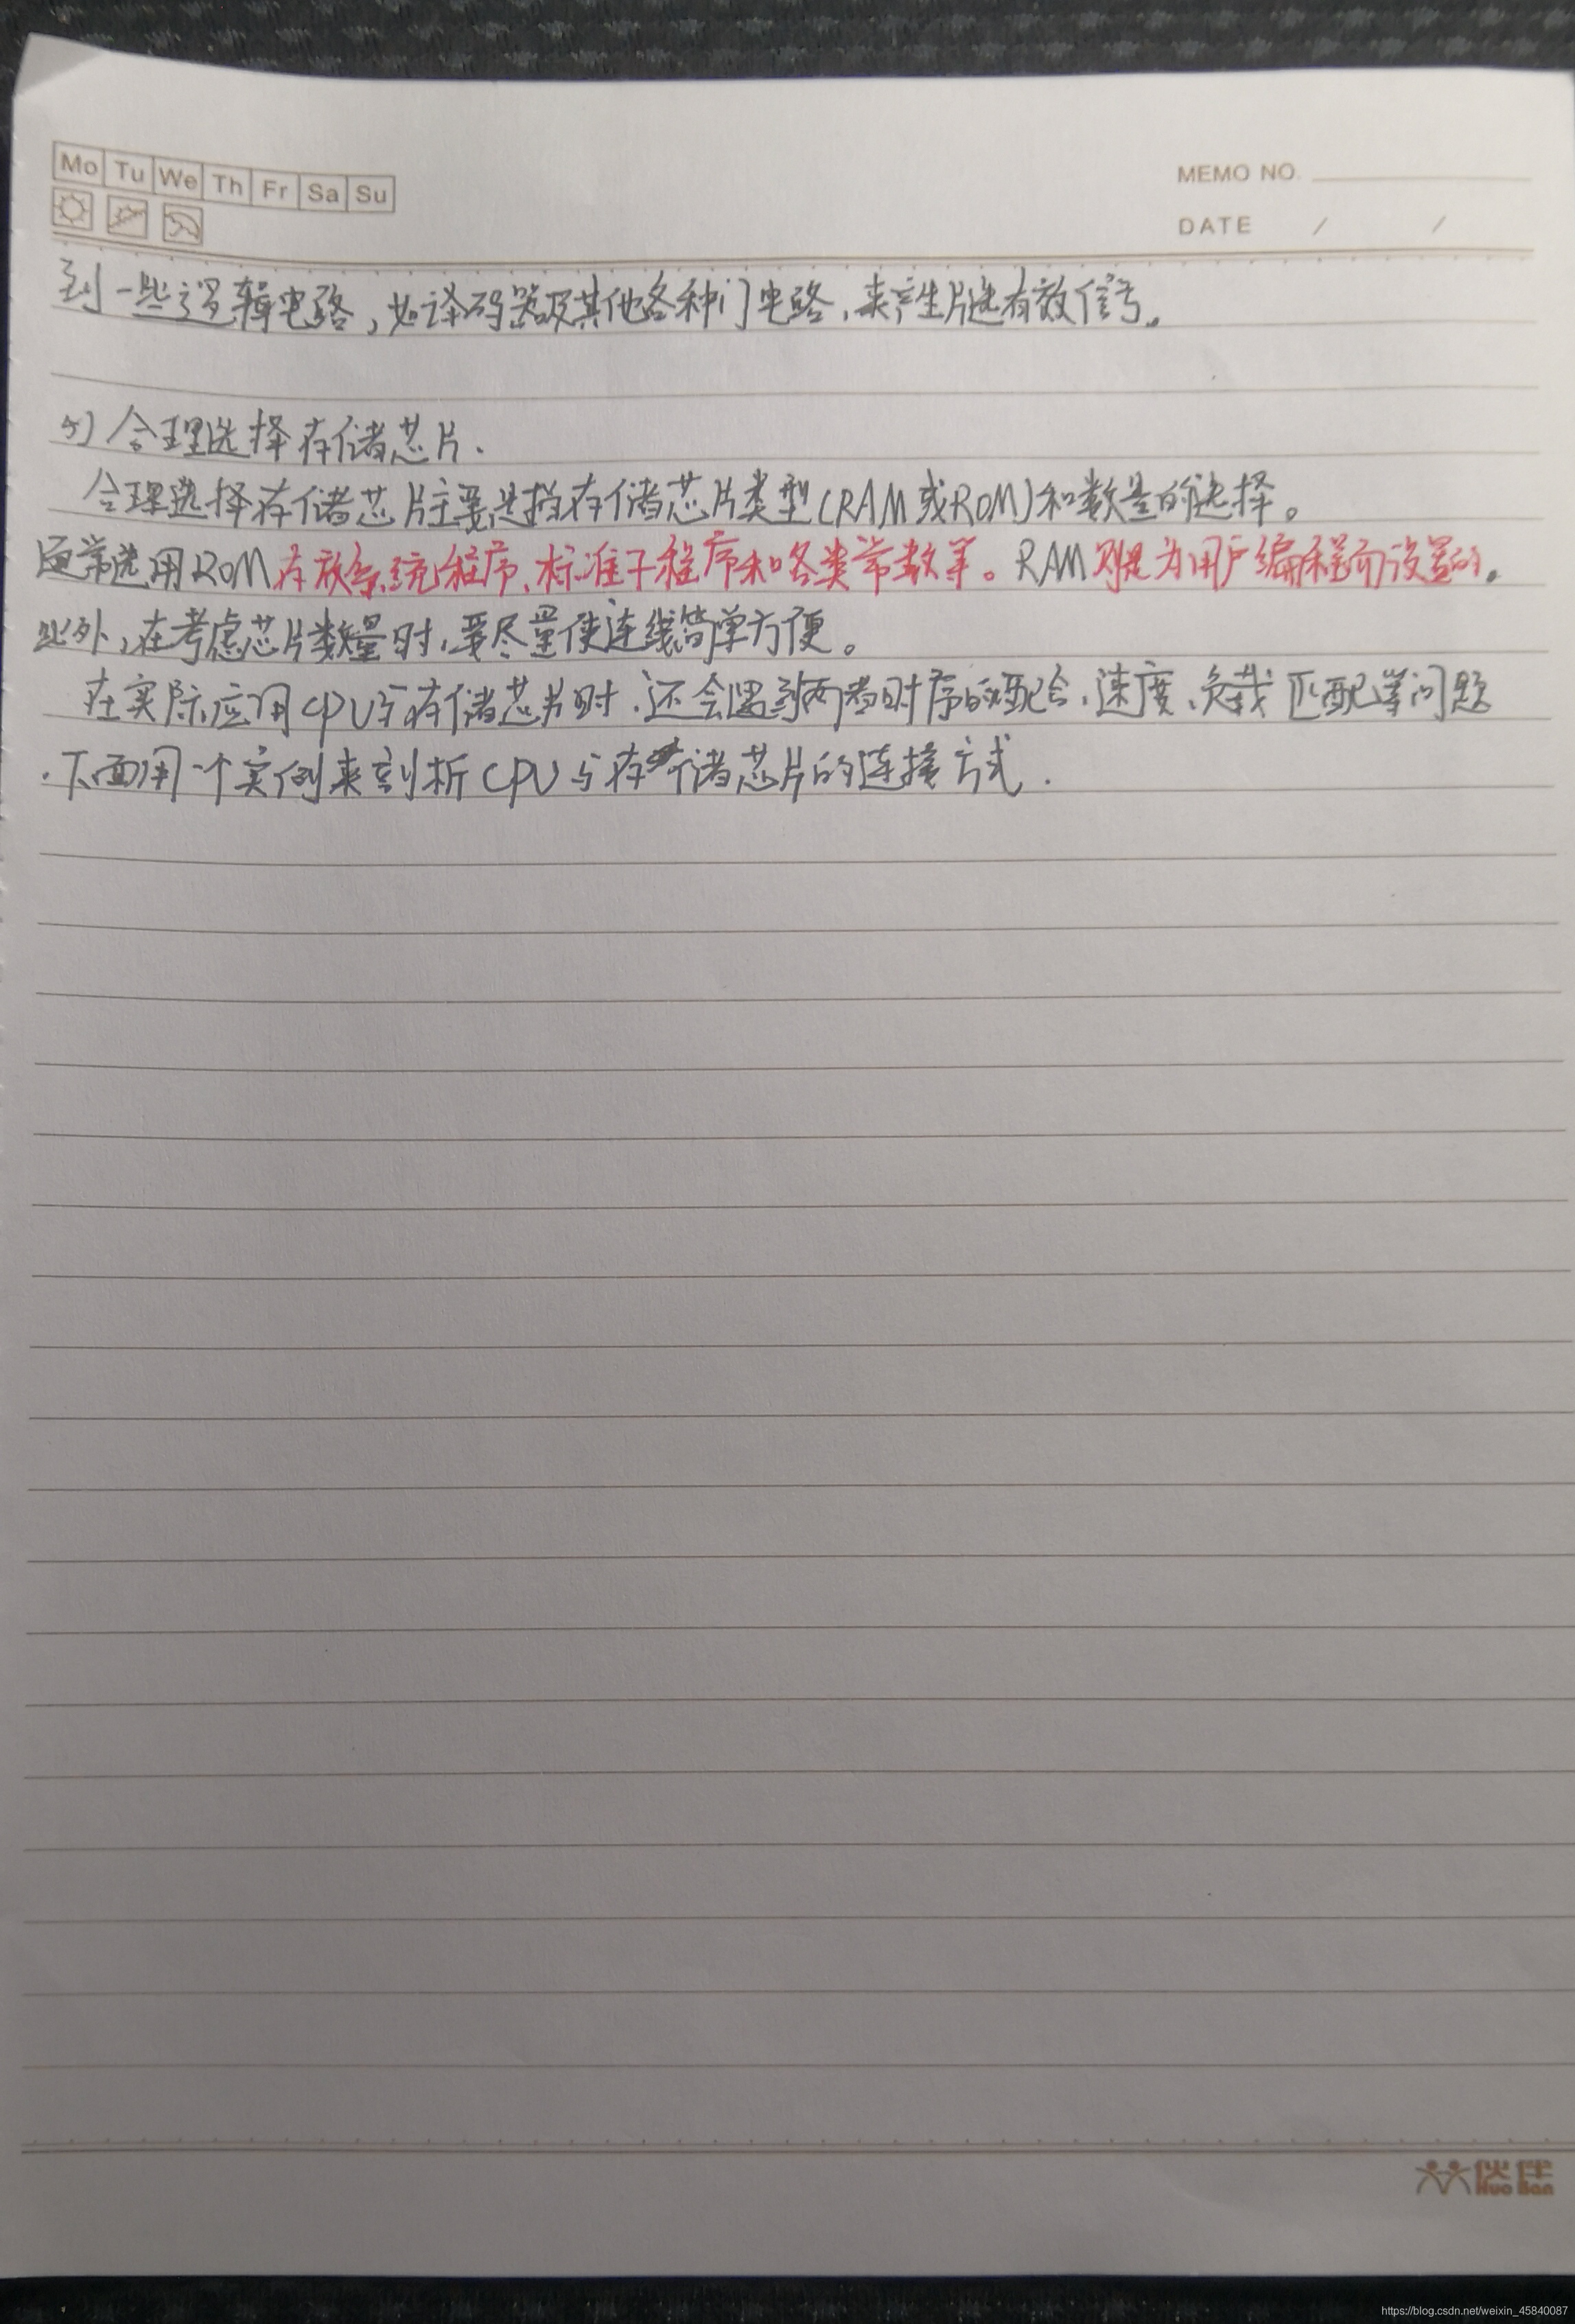 Mo Tu We Th Fr Sa Su
MEMO NO.
DATE / /
到一些逻辑电路,如译码器及其他各种门电路,来产生片选有效信号。
5) 合理选择存储芯片.
合理选择存储芯片主要是指存储芯片类型(RAM或ROM)和数量的选择。
通常选用ROM存放系统程序、标准子程序和各类常数等。RAM则是为用户编程而设置的。
此外,在考虑芯片数量时,要尽量使连线简单方便。
在实际应用CPU与存储芯片时,还会遇到两者时序的配合、速度、负载匹配等问题
.下面用一个实例来剖析CPU与存储芯片的连接方式.
伙伴
Huo Ban
https://blog.csdn.net/weixin_45840087